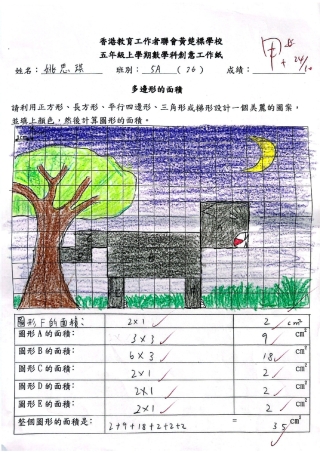 香港教育工作者聯會黃楚標學校
五年級上學期數學科創意工作紙
姓名： 姚思 班別： 5A ( 26 ) 成績：
多邊形的面積
請利用正方形、長方形、平行四邊形、三角形或梯形設計一個美麗的圖案，
並填上顏色，然後計算圖形的面積。
圖形F的面積： 2×1 2 cm²
圖形A的面積： 3×3 9 cm²
圖形B的面積： 6×3 18 cm²
圖形C的面積： 2×1 2 cm²
圖形D的面積： 2×1 2 cm²
圖形E的面積： 2×1 2 cm²
整個圖形的面積是： 2+9+18+2+2+2 = 35 cm²